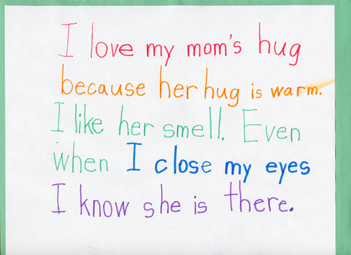 I love my mom's hug
because her hug is warm.
I like her smell. Even
when I close my eyes
I know she is there.